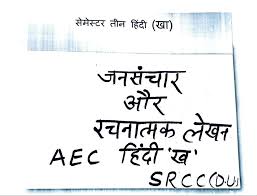 सेमेस्टर तीन हिंदी (खा)
जनसंचार
और
रचनात्मक लेखन
AEC हिंदी 'ख'
SRCC(DU)